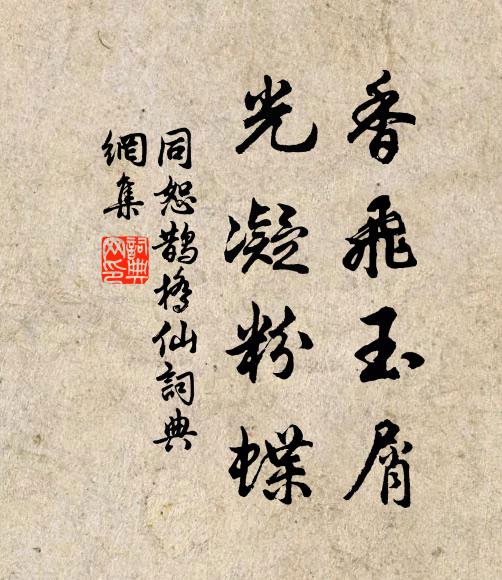 香飛玉屑
光凝粉蝶
同恕鵲橋仙詞典
網集
詞典
网印